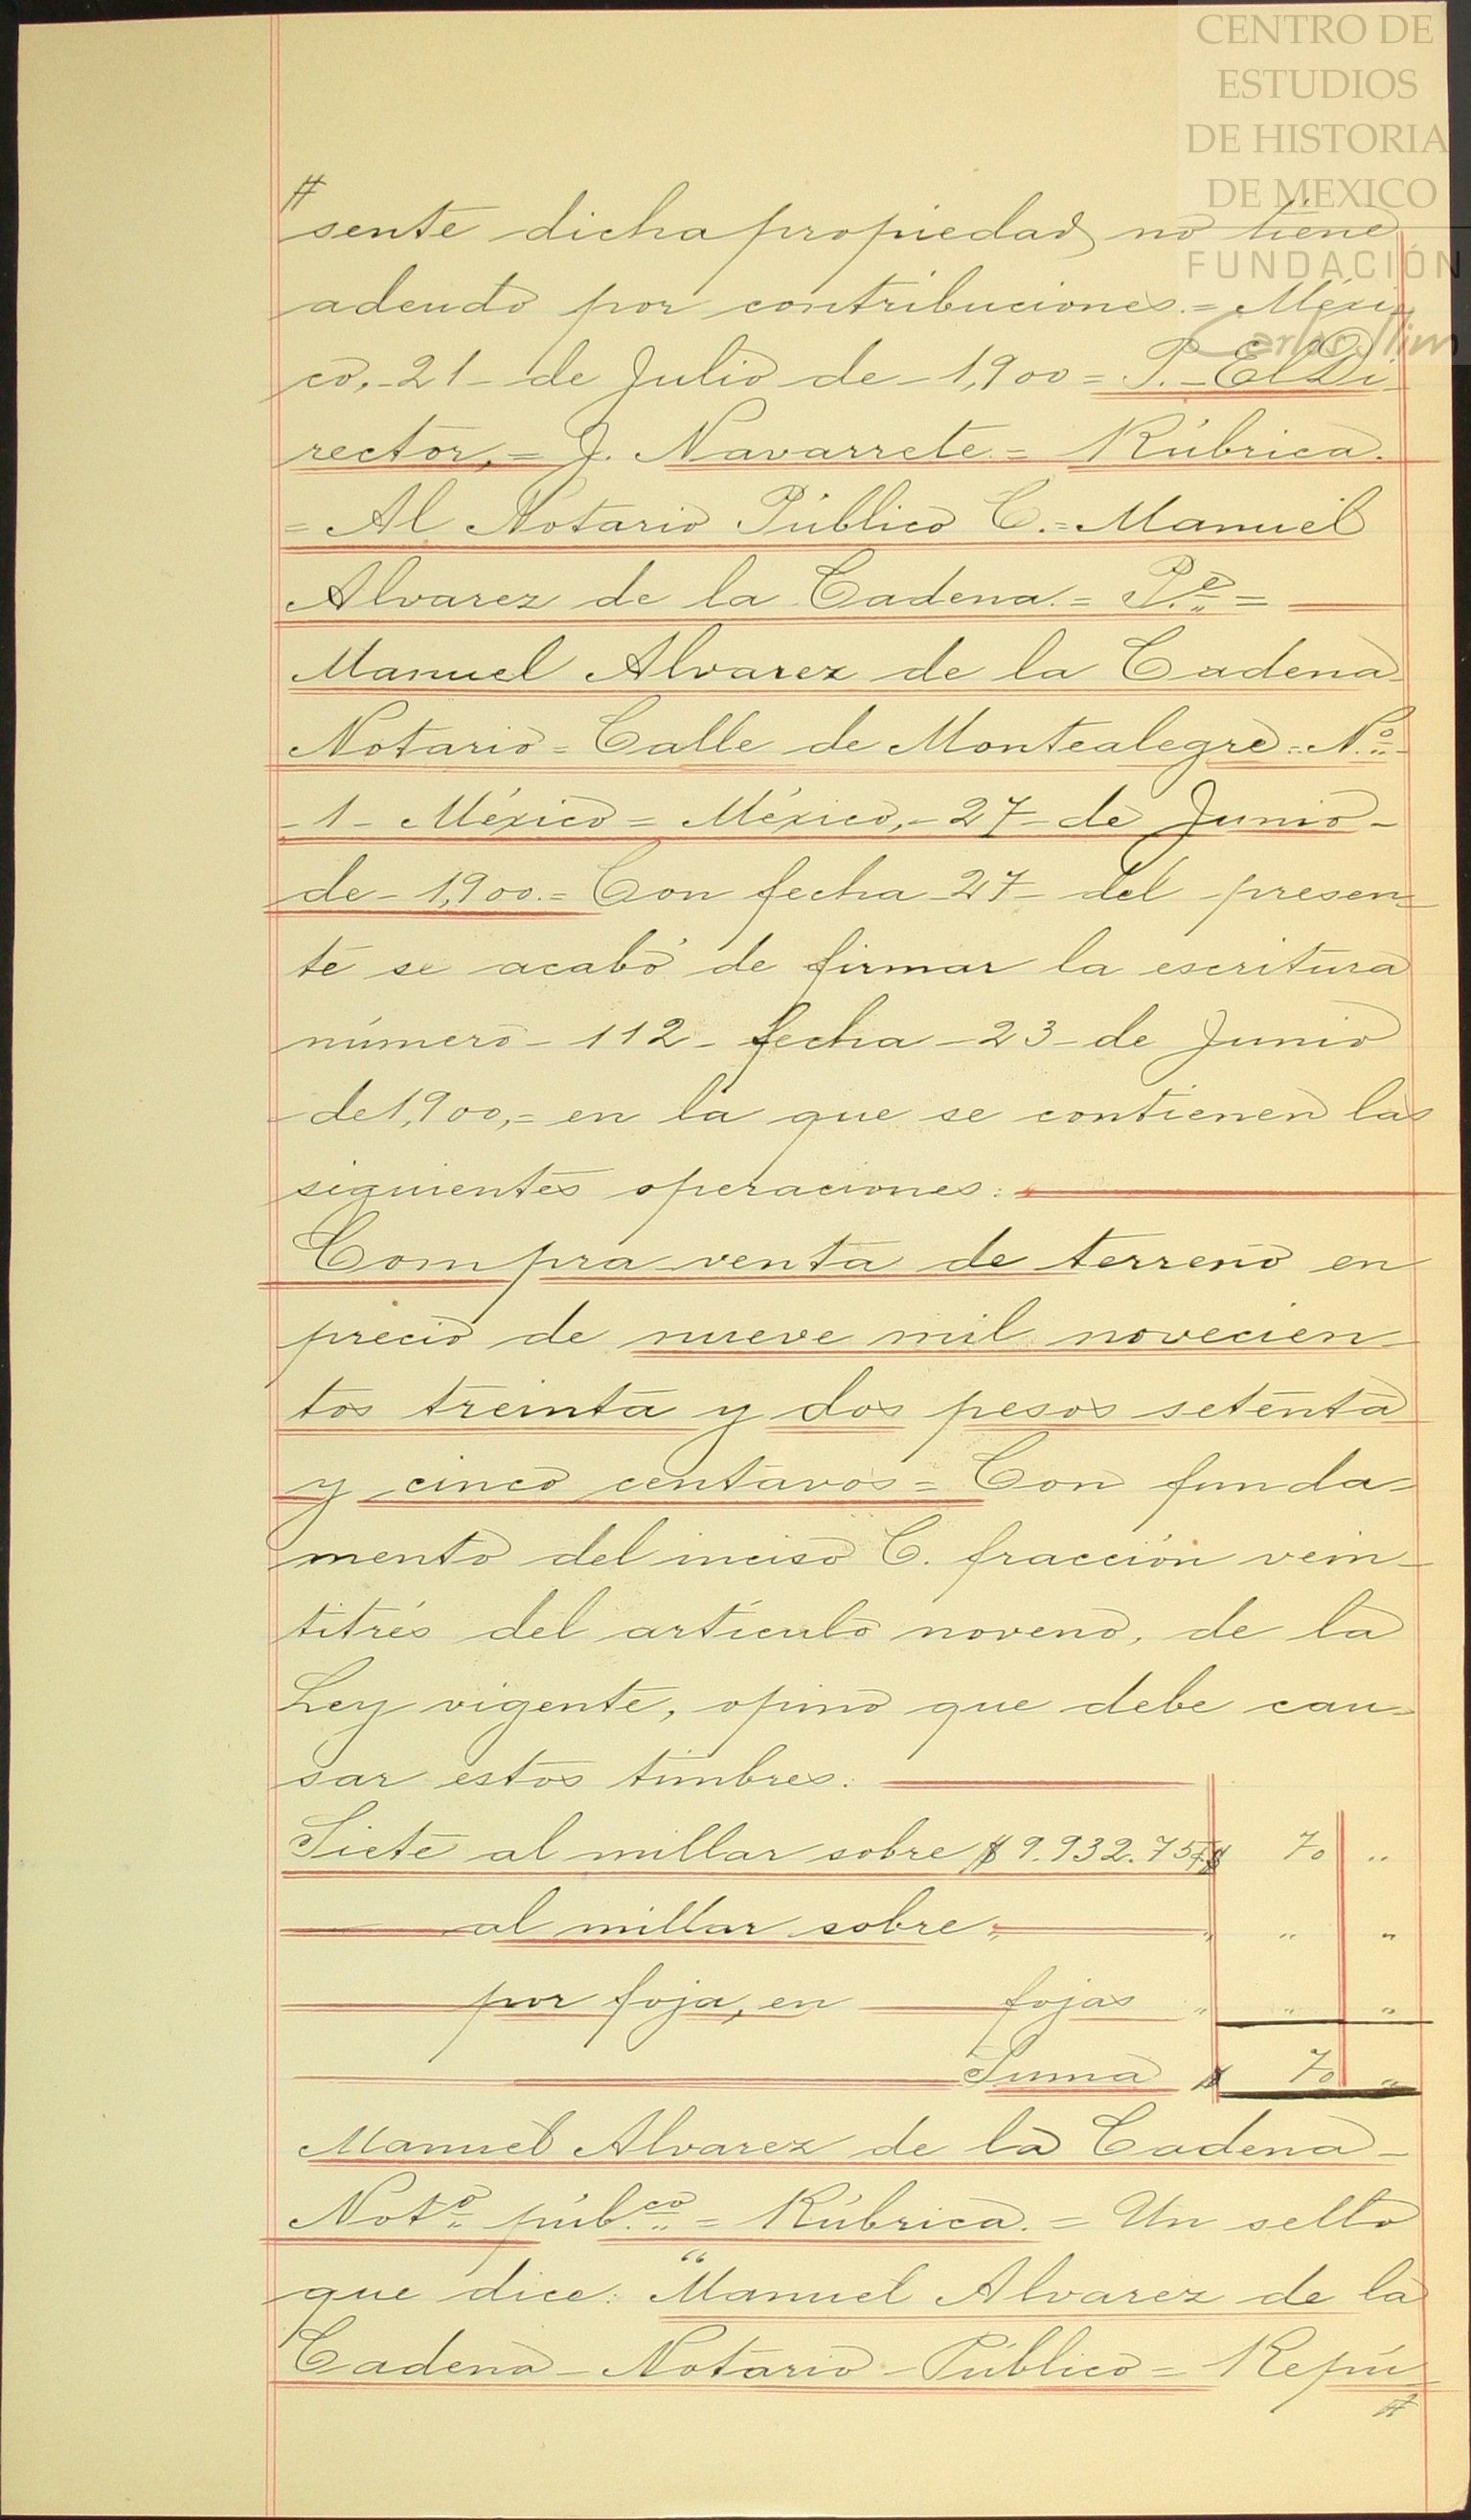 CENTRO DE
ESTUDIOS
DE HISTORIA
DE MEXICO
FUNDACIÓN
Carlos Slim
#
sente dicha propiedad no tiene
adeudo por contribuciones.= Méxi
co,-21- de Julio de-1,900= P.- El Di-
rector,= J. Navarrete.= Rúbrica.
= Al Notario Público C.= Manuel
Alvarez de la Cadena.= P.e =
Manuel Alvarez de la Cadena
Notario= Calle de Montealegre= N.o-
-1- México= México,-27- de Junio-
de-1,900.= Con fecha-27- del presen-
te se acabó de firmar la escritura
número-112- fecha-23- de Junio
de 1,900,= en la que se contienen las
siguientes operaciones:
Compra venta de terreno en
precio de nueve mil novecien-
tos treinta y dos pesos setenta
y cinco centavos= Con funda-
mento del inciso C. fracción vein-
titrés del artículo noveno, de la
Ley vigente, opino que debe cau-
sar estos timbres:
Siete al millar sobre $ 9.932.75 $ 70 "
al millar sobre " " " "
por foja, en fojas " " "
Suma $ 70 "
Manuel Alvarez de la Cadena-
Noto púb.co= Rúbrica.= Un sello
que dice: "Manuel Alvarez de la
Cadena- Notario- Público= Repú-
#